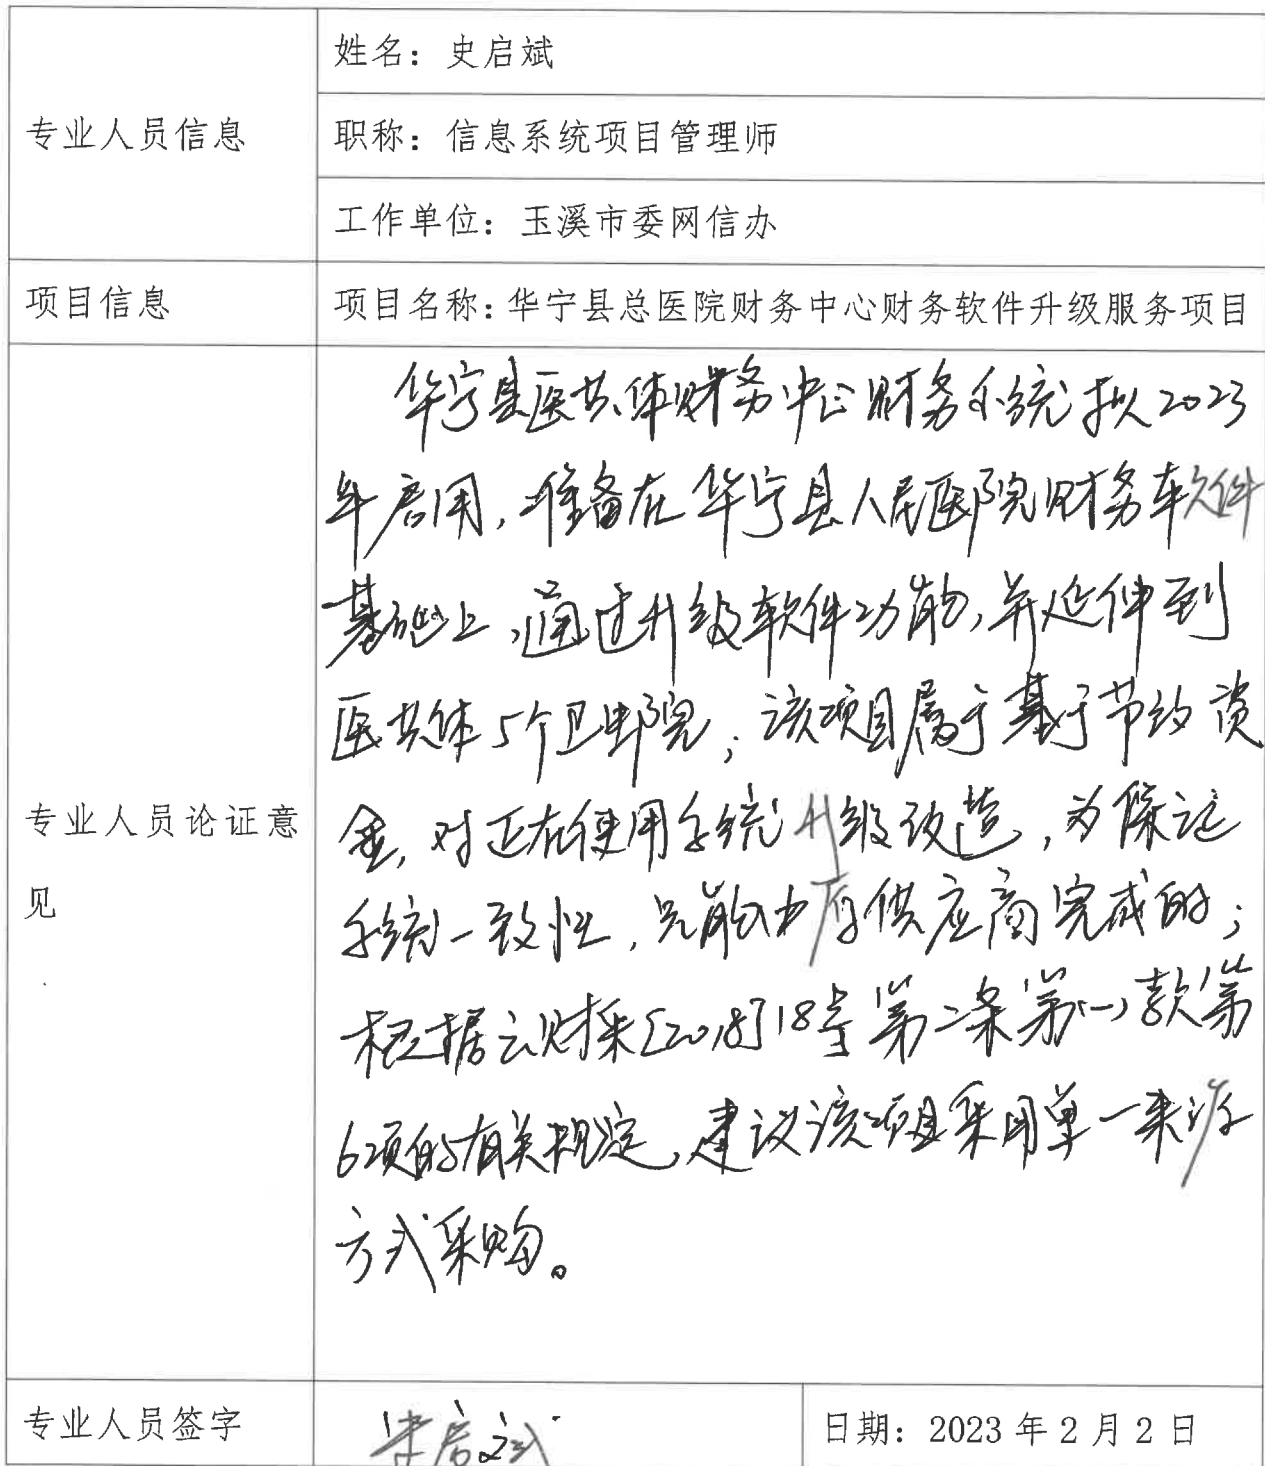 专业人员信息
姓名：史启斌
职称：信息系统项目管理师
工作单位：玉溪市委网信办
项目信息
项目名称：华宁县总医院财务中心财务软件升级服务项目
专业人员论证意
见
华宁县医共体财务中心财务系统拟2023
年启用，准备在华宁县人民医院财务软件
基础上，通过升级软件功能，并延伸到
医共体5个卫生院；该项目属于基于节约资
金，对正在使用系统升级改造，为保证
系统一致性，只能由原供应商完成的；
根据云财采〔2018〕18号第二条第(一)款第
6项的有关规定，建议该项目采用单一来源
方式采购。
专业人员签字
史启斌
日期：2023年2月2日